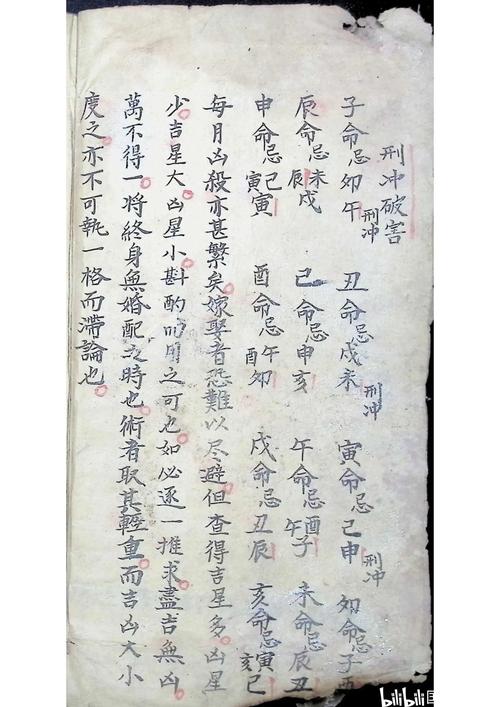 刑冲破害
子命忌卯午刑冲 丑命忌戌未刑冲 寅命忌己申刑冲 卯命忌子酉
辰命忌辰未戌 己命忌申亥 午命忌午酉子 未命忌辰丑
申命忌己寅寅 酉命忌酉午卯 戌命忌丑辰 亥命忌亥寅己
每月凶殺亦甚繁矣嫁娶者恐難以尽避但查得吉星多凶星
少吉星大凶星小斟酌而用之可也如必逐一推求盡吉無凶
萬不得一將終身無婚配之時也術者取其輕重而吉凶大小
度之亦不可執一格而滯論也
bilibili